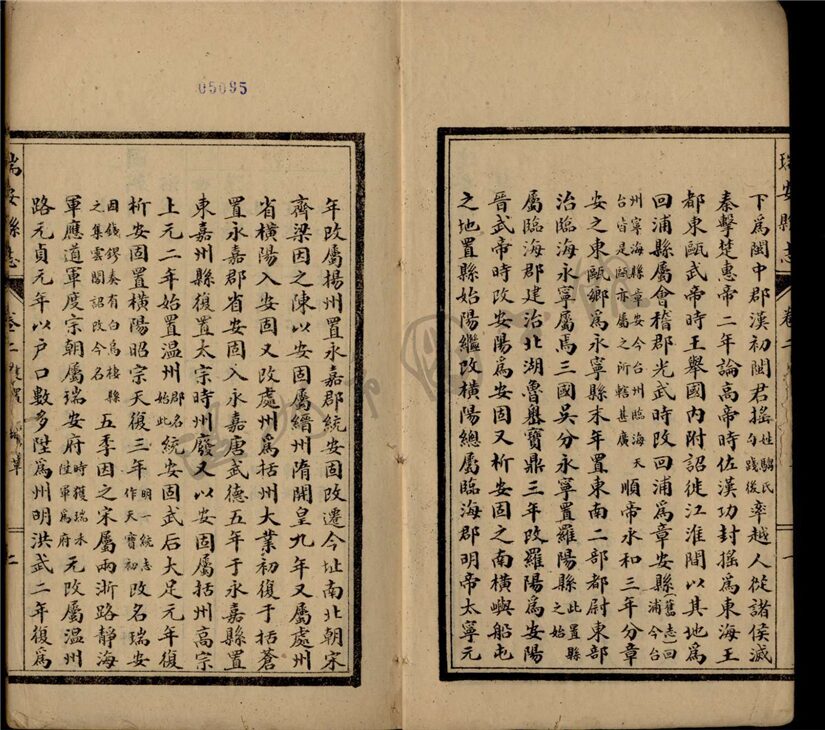 下爲閩中郡漢初閩君搖姓騶氏句踐後率越人從諸侯滅
秦擊楚惠帝二年論高帝時佐漢功封搖爲東海王
都東甌武帝時王舉國內附詔徙江淮間以其地爲
回浦縣屬會稽郡光武時改回浦爲章安縣(舊志)回浦今台
州寧海縣章安今台州臨海天台皆是甌亦屬之所轄甚廣順帝永和三年分章
安之東甌鄉爲永寧縣末年置東南二部都尉東部
治臨海永寧屬焉三國吳分永寧置羅陽縣此置縣之始
屬臨海郡建治北湖魯嶴寶鼎三年改羅陽爲安陽
晉武帝時改安陽爲安固又析安固之南橫嶼船屯
之地置縣始陽繼改橫陽總屬臨海郡明帝太寧元
瑞安縣志
卷二
一
05095
年改屬揚州置永嘉郡統安固改遷今址南北朝宋
齊梁因之陳以安固屬縉州隋開皇九年又屬處州
省橫陽入安固又改處州爲括州大業初復于括蒼
置永嘉郡省安固入永嘉唐武德五年于永嘉縣置
東嘉州縣復置太宗時州廢又以安固屬括州高宗
上元二年始置温州郡名始此統安固武后大足元年復
析安固置橫陽昭宗天復三年明一統志作天寶初改名瑞安
因錢鏐奏有白烏棲縣之集雲閣詔改今名五季因之宋屬兩浙路靜海
軍應道軍度宗朝屬瑞安府時獲瑞木陞軍爲府元改屬温州
路元貞元年以户口數多陞爲州明洪武二年復爲
瑞安縣志
卷二
二